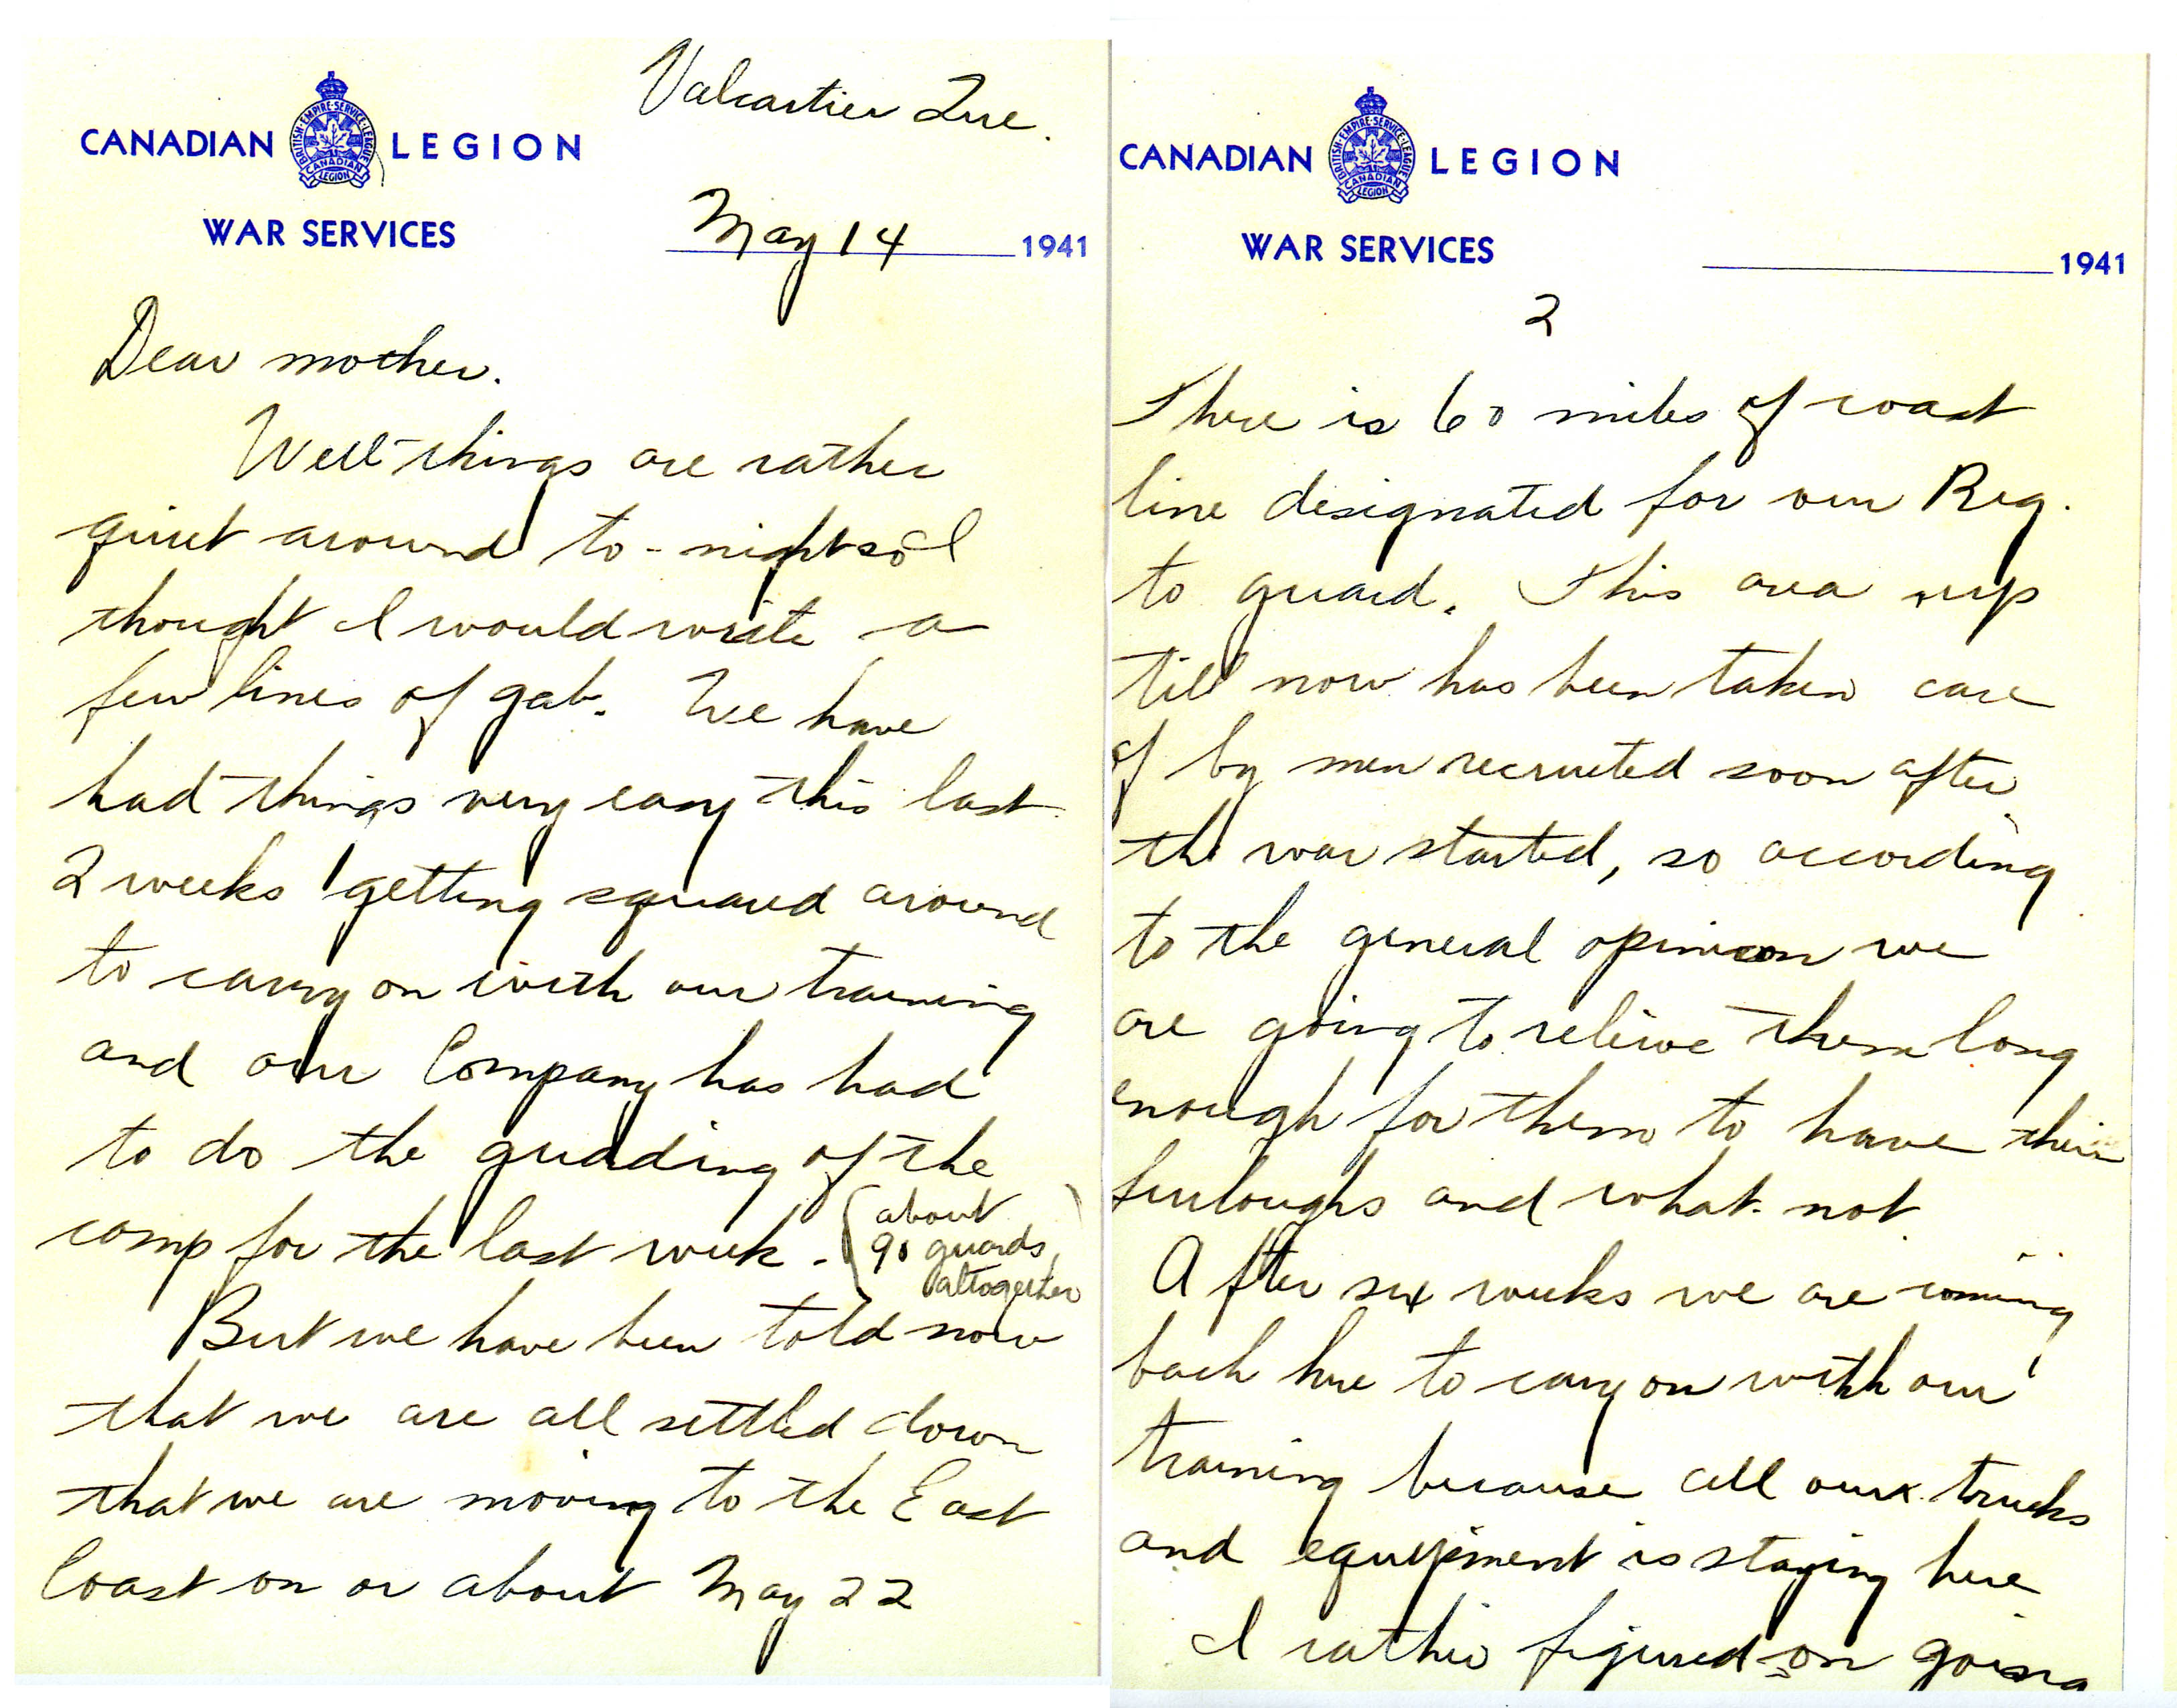 Valcartier Que.
CANADIAN LEGION
BRITISH·EMPIRE·SERVICE·LEAGUE
CANADIAN
LEGION
WAR SERVICES
May 14 1941
Dear mother.
Well things are rather
quiet around to-night so I
thought I would write a
few lines of gab. We have
had things very easy this last
2 weeks getting squared around
to carry on with our training
and our Company has had
to do the guarding of the
camp for the last week. (about
90 guards
altogether)
But we have been told now
that we are all settled down
that we are moving to the East
Coast on or about May 22
CANADIAN LEGION
BRITISH·EMPIRE·SERVICE·LEAGUE
CANADIAN
LEGION
WAR SERVICES
1941
2
There is 60 miles of coast
line designated for our Reg.
to guard. This area up
till now has been taken care
of by men recruited soon after
the war started, so according
to the general opinion we
are going to relieve them long
enough for them to have their
furloughs and what-not
After six weeks we are coming
back here to carry on with our
training because all our trucks
and equipment is staying here
I rather figured on going